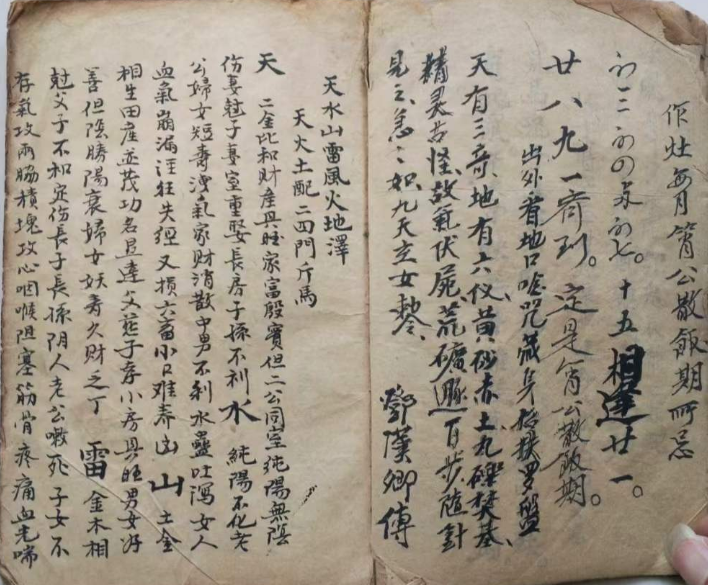 作灶每月箵公散飯期所忌
初三初四亥初七。十五相逢廿一。
廿八九一齊到。定是箵公散飯期。
出外看地口唸咒藏身
羅盤
天有三奇、地有六仪、黄砂赤土、瓦礫焚基、
精灵古怪、故氣伏屍、荒礦 百步、随針
見之、急〻如九天玄女勅令、
鄧漢卿傅
天水山雷風火地澤
天火土配二四門斤馬
天 二金比和財産興旺家富殷實但二公同室純陽無陰
伤妻尅子專室重娶長房子孫不利 水 純陽不化老
公婦女短壽洩氣家財消散中男不利水蠱吐瀉女人
血氣崩漏 狂失經又損六畜小口难养凶 山 土金
相生田産並茂功名显達父慈子孝小房興旺男女好
善但陰勝陽衰婦女妖寿久財乏丁 雷 金木相
尅父子不和定伤長子長孫阴人老公嗽死子女不
存氣攻两脇積塊攻心咽喉阻塞筋骨疼痛血光喘